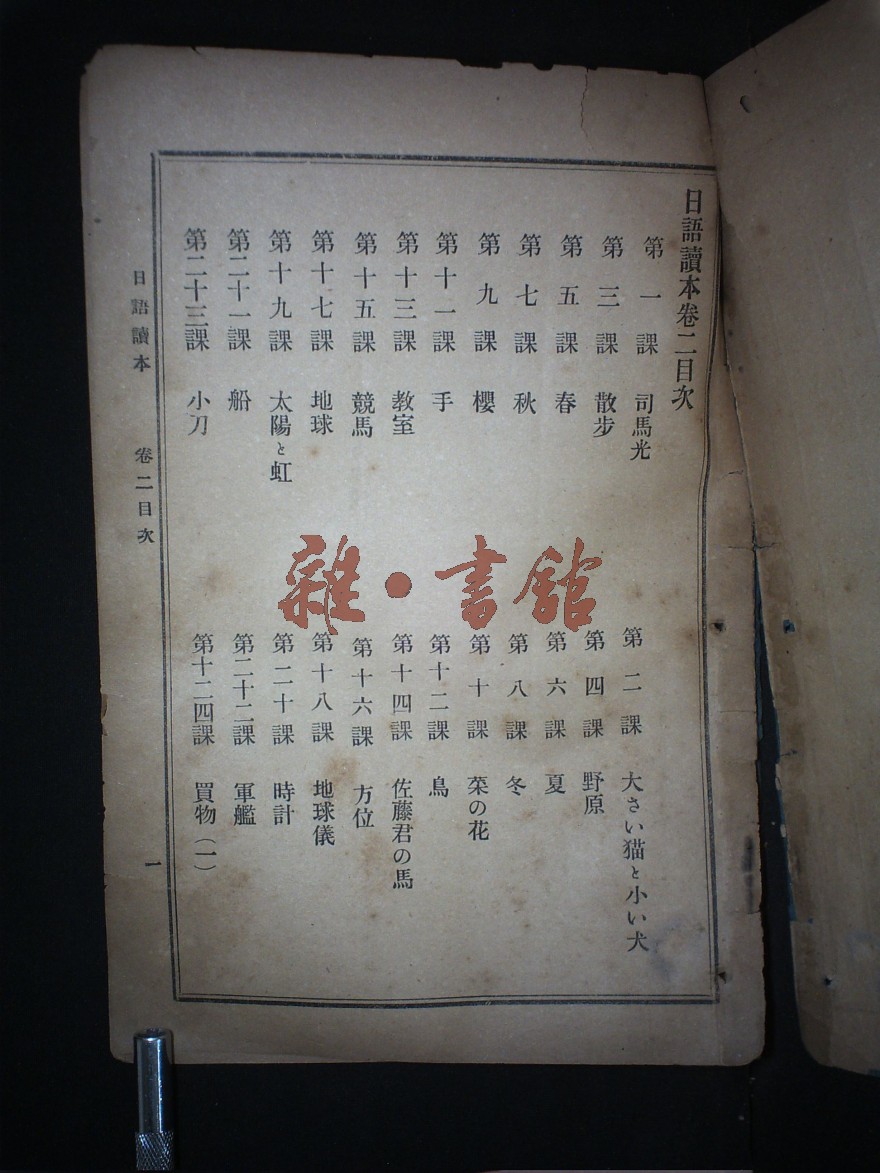 日語讀本卷二目次
第一課 司馬光
第二課 大さい猫と小い犬
第三課 散步
第四課 野原
第五課 春
第六課 夏
第七課 秋
第八課 冬
第九課 櫻
第十課 菜の花
第十一課 手
第十二課 鳥
第十三課 教室
第十四課 佐藤君の馬
第十五課 競馬
第十六課 方位
第十七課 地球
第十八課 地球儀
第十九課 太陽と虹
第二十課 時計
第二十一課 船
第二十二課 軍艦
第二十三課 小刀
第十二四課 買物(一)
日語讀本 卷二目次 一
雜·書館